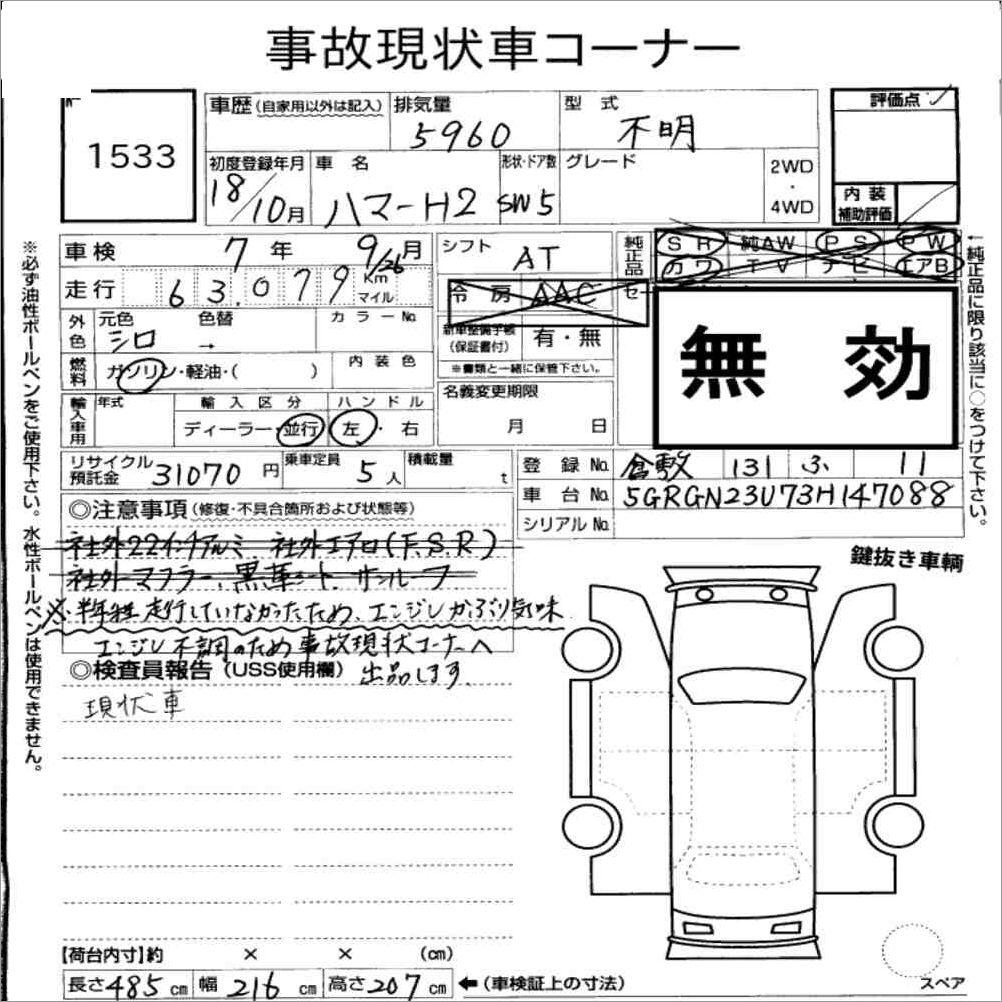 事故現状車コーナー
1533
車歴(自家用以外は記入)
排気量
5960
型 式
不明
評価点
初度登録年月
18/10月
車 名
ハマーH2
形状・ドア数
SW5
グレード
2WD
・
4WD
内 装
補助評価
車検 7年 9/26月
シフト AT
純正品
SR 純AW PS PW
カワ TV ナビ エアB
走行 63.079 Km マイル
冷 房 AAC
外色
元色 シロ
色替 →
カラーNo.
新車整備手帳
(保証書付)
有・無
※書類と一緒に保管下さい。
無 効
燃料
ガソリン・軽油・( )
内 装 色
名義変更期限
月 日
輸入車用
年式
輸 入 区 分
ディーラー・並行
ハ ン ド ル
左・右
リサイクル預託金 31070 円
乗車定員 5人
積載量 t
登 録 No. 倉敷 131 ふ 11
車 台 No. 5GRGN23U73H147088
シリアルNo.
◎注意事項(修復・不具合箇所および状態等)
社外22インチアルミ 社外エアロ(F.S.R)
社外マフラー.黒革シート.サンルーフ
※.半年程走行していなかったため、エンジンかぶり気味
エンジン不調のため事故現状コーナーへ
出品します.
◎検査員報告(USS使用欄)
現状車
鍵抜き車輌
【荷台内寸】約 × × (cm)
長さ485cm 幅216cm 高さ207cm ←(車検証上の寸法)
スペア
※必ず油性ボールペンをご使用下さい。水性ボールペンは使用できません。
←純正品に限り該当に○をつけて下さい。